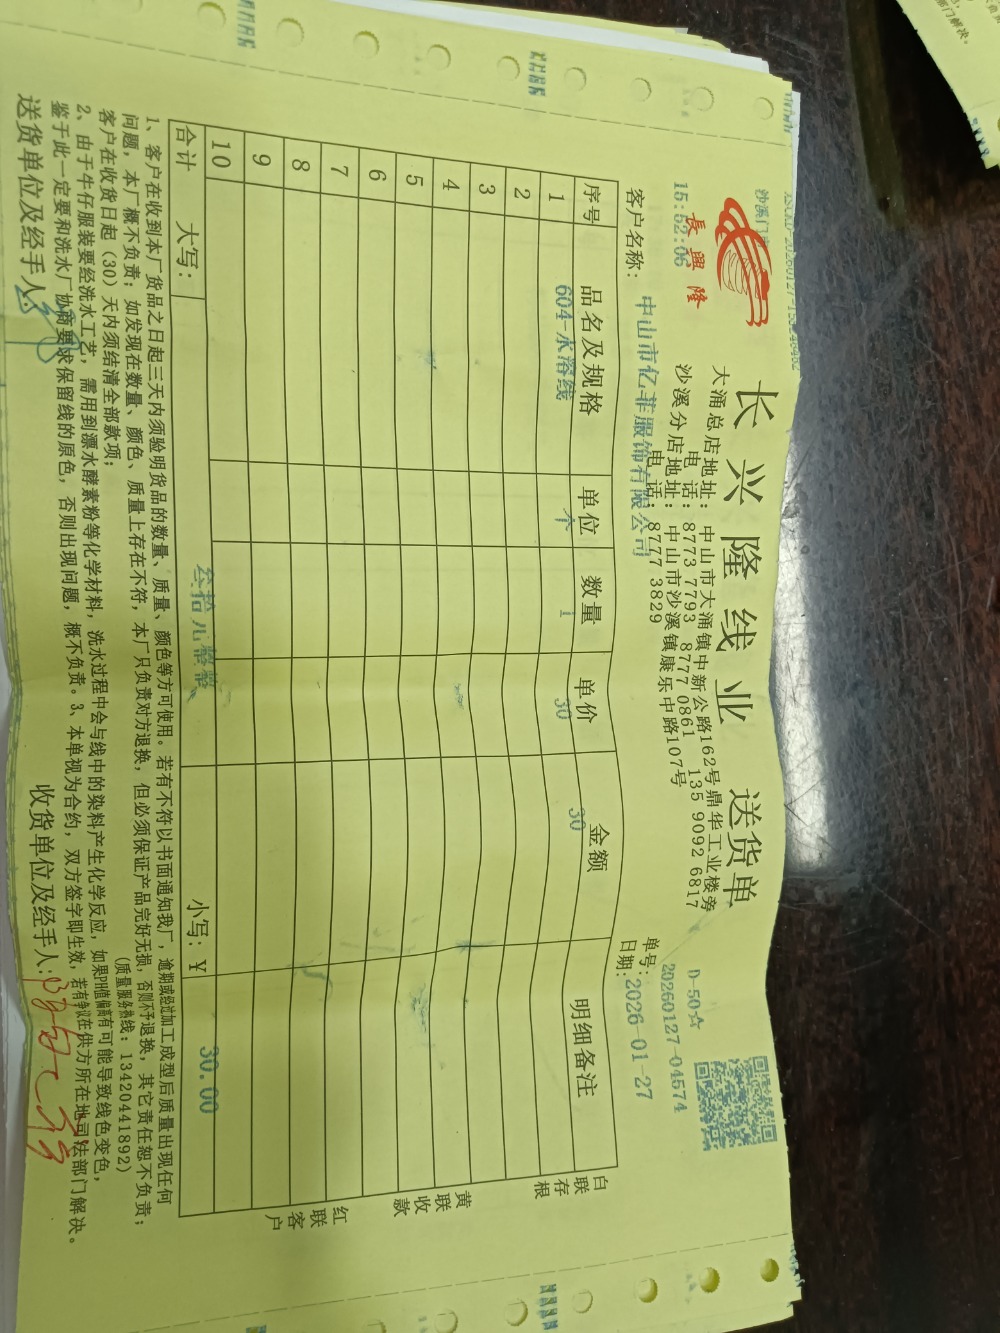 沙溪门
長興隆
15:52:06
长兴隆线业 送货单
大涌总店地址：中山市大涌镇中新公路162号鼎华工业楼旁
电 话：8773 7793 8777 0861 135 9092 6817
沙溪分店地址：中山市沙溪镇康乐中路107号
电 话：8777 3829
D-50☆
单号：20260127-04574
日期：2026-01-27
客户名称：中山市亿菲服饰有限公司
序号 品名及规格 单位 数量 单价 金额 明细备注
1 604-水溶线 个 1 30 30
2
3
4
5
6
7
8
9
10
合计 大写： 叁拾元整 小写：￥ 30.00
白联存根
黄联收款
红联客户
1、客户在收到本厂货品之日起三天内须验明货品的数量、质量、颜色等方可使用。若有不符以书面通知我厂，逾期或经过加工成型后质量出现任何
问题，本厂概不负责；如发现在数量、颜色、质量上存在不符，本厂只负责对方退换，但必须保证产品完好无损，否则不予退换，其它责任恕不负责；
客户在收货日起（30）天内须结清全部款项； （质量服务热线：13420441892）
2、由于牛仔服装要经洗水工艺，需用到漂水酵素粉等化学材料，洗水过程中会与线中的染料产生化学反应，如果PH值偏高有可能导致线色变色，
鉴于此一定要和洗水厂协商要求保留线的原色，否则出现问题，概不负责。3、本单视为合约，双方签字即生效，若有争议在供方所在地司法部门解决。
送货单位及经手人： 收货单位及经手人：
部门解决。